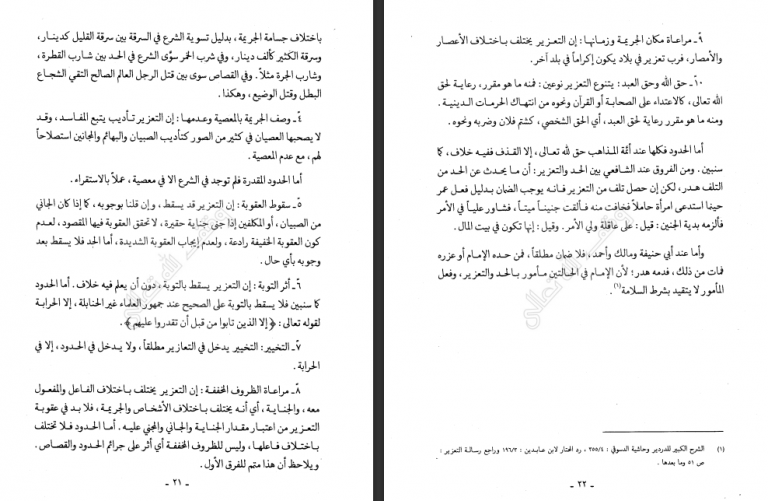 باختلاف جسامة الجريمة، بدليل تسوية الشرع في السرقة بين سرقة القليل كدينار،
وسرقة الكثير كألف دينار، وفي شرب الخمر سوّى الشرع في الحد بين شارب القطرة،
وشارب الجرة مثلاً. وفي القصاص سوى بين قتل الرجل العالم الصالح التقي الشجاع
البطل وقتل الوضيع، وهكذا.
٤ ـ وصف الجريمة بالمعصية وعدمها: إن التعزير تأديب يتبع المفاسد، وقد
لا يصحبها العصيان في كثير من الصور كتأديب الصبيان والبهائم والمجانين استصلاحاً
لهم، مع عدم المعصية.
أما الحدود المقدرة فلم توجد في الشرع إلا في معصية، عملاً بالاستقراء.
٥ ـ سقوط العقوبة: إن التعزير قد يسقط، وإن قلنا بوجوبه، كما إذا كان الجاني
من الصبيان، أو المكلفين إذا جنى جناية حقيرة، لا تحقق العقوبة فيها المقصود، لعدم
كون العقوبة الخفيفة رادعة، ولعدم إيجاب العقوبة الشديدة. أما الحد فلا يسقط بعد
وجوبه بأي حال.
٦ ـ أثر التوبة: إن التعزير يسقط بالتوبة، دون أن يعلم فيه خلاف. أما الحدود
كما سنبين فلا يسقط بالتوبة على الصحيح عند جمهور العلماء غير الحنابلة، إلا الحرابة
لقوله تعالى: ﴿إلا الذين تابوا من قبل أن تقدروا عليهم﴾.
٧ ـ التخيير: التخيير يدخل في التعازير مطلقاً، ولا يدخل في الحدود، إلا في
الحرابة.
٨ ـ مراعاة الظروف المخففة: إن التعزير يختلف باختلاف الفاعل والمفعول
معه، والجناية، أي أنه يختلف باختلاف الأشخاص والجريمة، فلا بد في عقوبة
التعزير من اعتبار مقدار الجناية والجاني والمجني عليه. أما الحدود فلا تختلف
باختلاف فاعلها، وليس للظروف المخففة أي أثر على جرائم الحدود والقصاص.
ويلاحظ أن هذا متم للفرق الأول.
ـ ٢١ ـ
٩ ـ مراعاة مكان الجريمة وزمانها: إن التعزير يختلف باختلاف الأعصار
والأمصار، فرب تعزير في بلاد يكون إكراماً في بلد آخر.
١٠ ـ حق الله وحق العبد: يتنوع التعزير نوعين: فمنه ما هو مقرر، رعاية لحق
الله تعالى، كالاعتداء على الصحابة أو القرآن ونحوه من انتهاك الحرمات الدينية.
ومنه ما هو مقرر رعاية لحق العبد، أي الحق الشخصي، كشتم فلان وضربه ونحوه.
أما الحدود فكلها عند أئمة المذاهب حق لله تعالى، إلا القذف ففيه خلاف، كما
سنبين. ومن الفروق عند الشافعي بين الحد والتعزير: أن ما يحدث عن الحد من
التلف هدر، لكن إن حصل تلف من التعزير فإنه يوجب الضمان بدليل فعل عمر
حينما استدعى امرأة حاملاً فخافت منه فألقت جنيناً ميتاً، فشاور علياً في الأمر
فألزمه بدية الجنين: قيل: على عاقلة ولي الأمر. وقيل: إنها تكون في بيت المال.
وأما عند أبي حنيفة ومالك وأحمد، فلا ضمان مطلقاً، فمن حده الإمام أو عزره
فمات من ذلك، فدمه هدر؛ لأن الإمام في الحالتين مأمور بالحد والتعزير، وفعل
المأمور لا يتقيد بشرط السلامة(١).
(١) الشرح الكبير للدردير وحاشية الدسوقي: ٣٥٥/٤، رد المحتار لابن عابدين: ١٩٦/٣ وراجع رسالة التعزير:
ص ٥١ وما بعدها.
ـ ٢٢ ـ